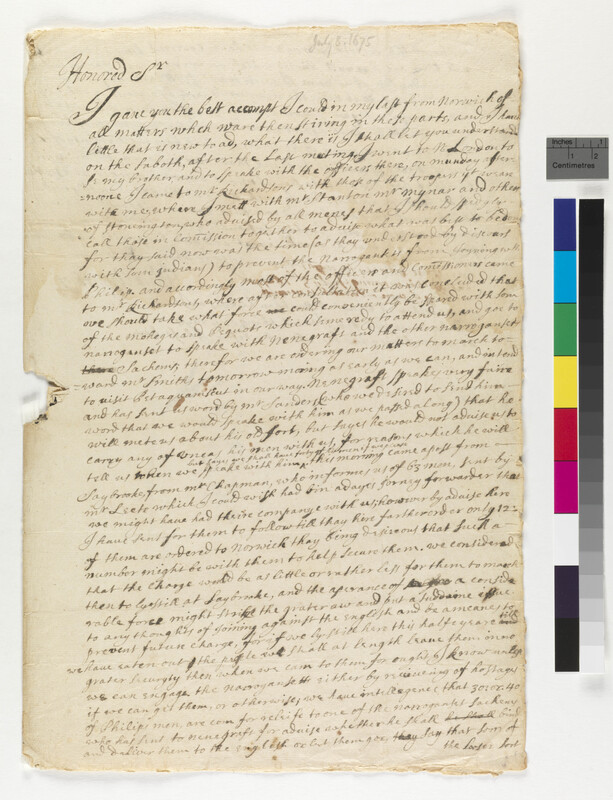 July 8. 1675
Honored Sr
I gave you the best accompt I could in my last from Norwich of
all matters which ware then stiring in these parts, and I have
little that is new to ad, what there is I shall let you understand
on the saboth, after the last meting I went to N London to
my brother and to speake with the officers there, on munday after
noone I came to mr Richardsons with those of the troopers
with me, where I mett with mr Stanton mr mynar and others
of stonington, who advised by all menes that I should
call those in Comission together to advise what was best to be
for thay said now was the time (as thay understood by discours
with som indians) to prevent the Narragensets from joyning with
Philip and accordingly most of the officers and Comissioners came
to mr Richardsons, where after it was concluded that
we should take what force we could conveniently be spared with som
of the moheges and pequots which semeredy to attend us, and goe to
narroganset to speake with Nenegraft and the other narroganset
Sachems, therefor we are ordering our matters to march to
ward mr Smiths tomorrow morning as early as we can, and intend
to visit in our way. Nenegraft speakes very faire
and has sent us word by mr Sanders (who we desired to send him
word that we would speake with him as we passed along) that he
will mete us about his old fort, but sayes he would not advise us to
carry any of Uncas his men with us, for reasons which he will
tell us when we speake with him, this morning came a post from
Saybrooke, from mr Chapman, who informes us of 63 men, sent by
mr Leete which I could wish had bin a dayes forwarder that
we might have had theire companye with us, however by advise here
I have sent for them to follow till thay have farther order only 12
of them are ordered to Norwich thay being desireous that such a
number might be with them to help secure them. we considered
that the Charge would be as little or rather less for them to march
then to ly still at Saybrook, and the aperance of a conside
rable force might strik the grater aw and put a suddaine
to any thoughts of joining against the english and be a meanes to
prevent future charge, for if we ly still here this halfe yeare
we have eaten out the people we shall at length leave them in no
grater security then when we cam to them for ought I know unless
we can engage the Narrogansett either by receiveing of hostages
if we can get them, or otherwise, we have intelegence that 30: or 40
of Philips men, are com for releife to one of the narroganset sachems
who has sent to nenegraft for advise whether he shall bind
and deliver them to the english or let them goe, say that som of
the loose sort